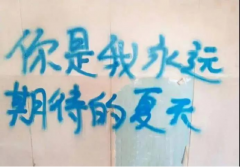 你是我永远
期待的夏天